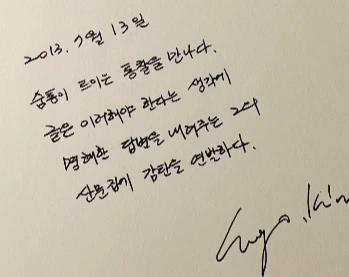 2013. 7월 13일
숨통이 트이는 통찰을 만나다.
글은 이러해야 한다는 생각에
명쾌한 답변을 내려주는 그의
산문집에 감탄을 연발하다.
Hugo. Kim